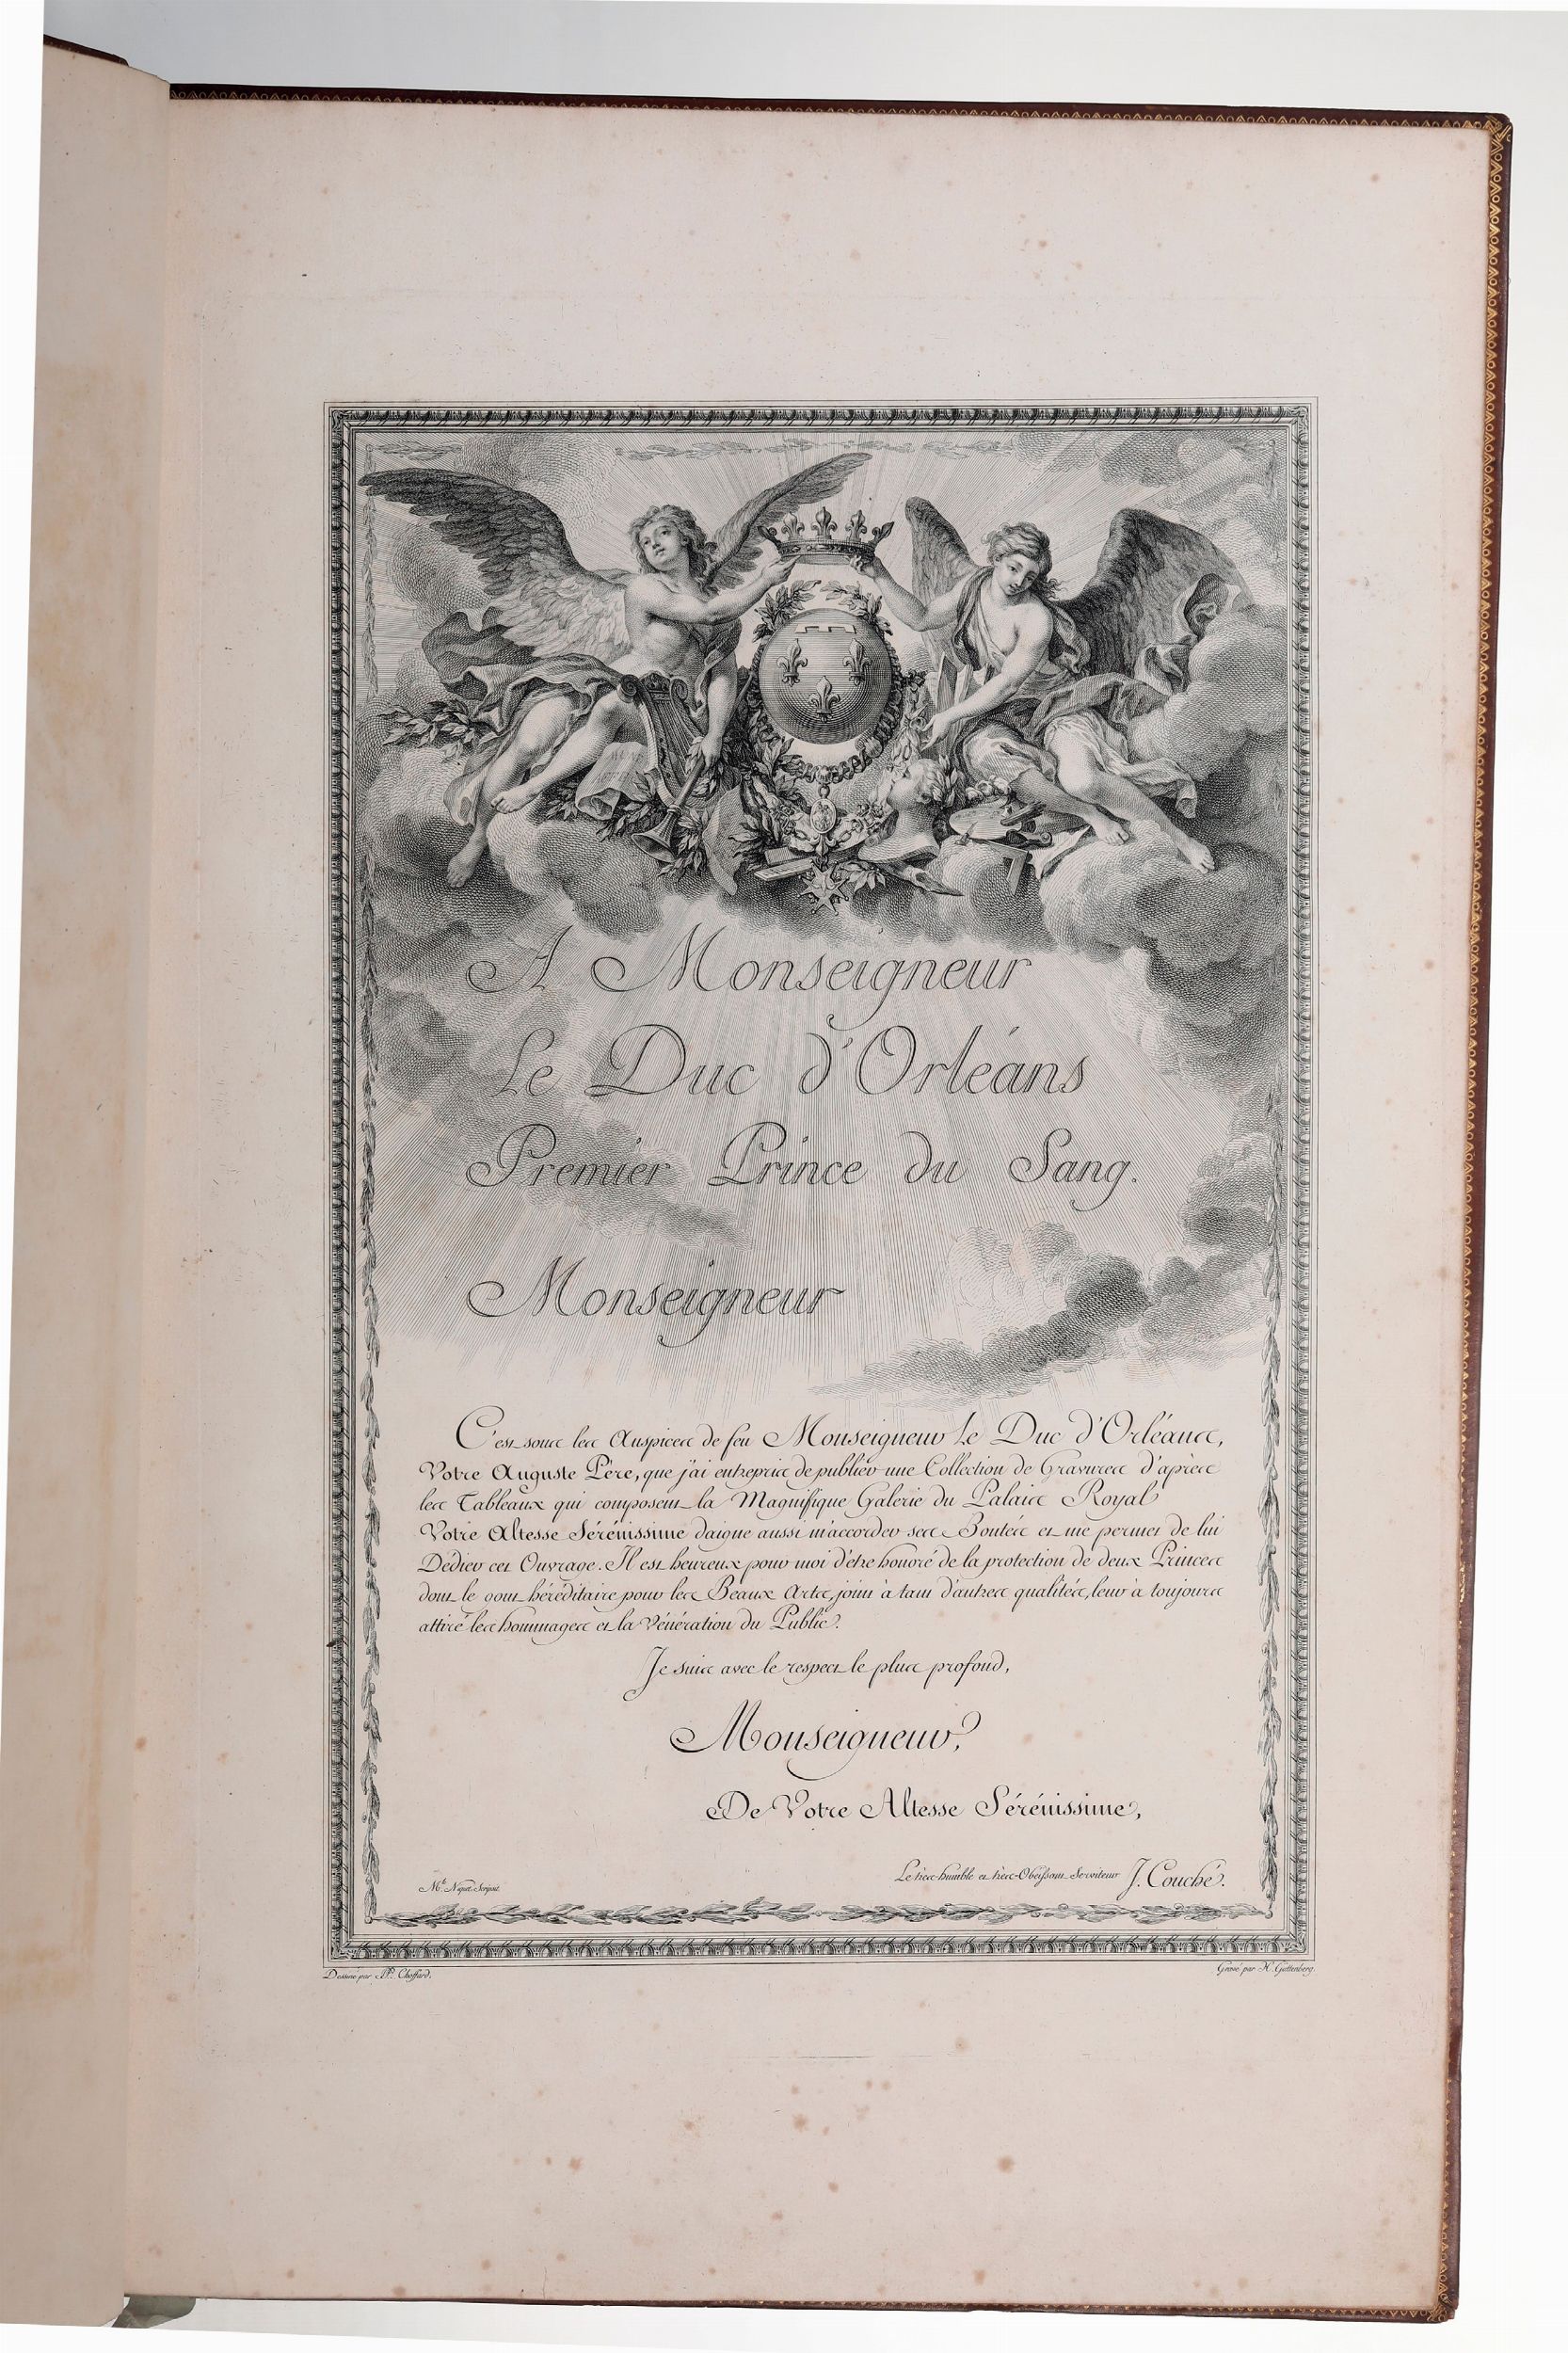 A Monseigneur
Le Duc d'Orléans
Premier Prince du Sang.
Monseigneur
C'est sous les Auspices de feu Monseigneur Le Duc d'Orléans,
Votre Auguste Père, que j'ai entrepris de publier une Collection de Gravures d'après
les Tableaux qui composent la Magnifique Galerie du Palais Royal
Votre Altesse Sérénissime daigne aussi m'accorder ses Bontés et me permet de lui
Dédier cet Ouvrage. Il est heureux pour moi d'être honoré de la protection de deux Princes
dont le gout héréditaire pour les Beaux Arts, joint à tant d'autres qualités, leur à toujours
attiré les hommages et la Vénération du Public.
Je suis avec le respect le plus profond,
Monseigneur,
De Votre Altesse Sérénissime,
Le très-humble et très-Obéissant Serviteur J. Couché.
Dessiné par P.P. Choffard.
Gravé par H. Guttenberg.